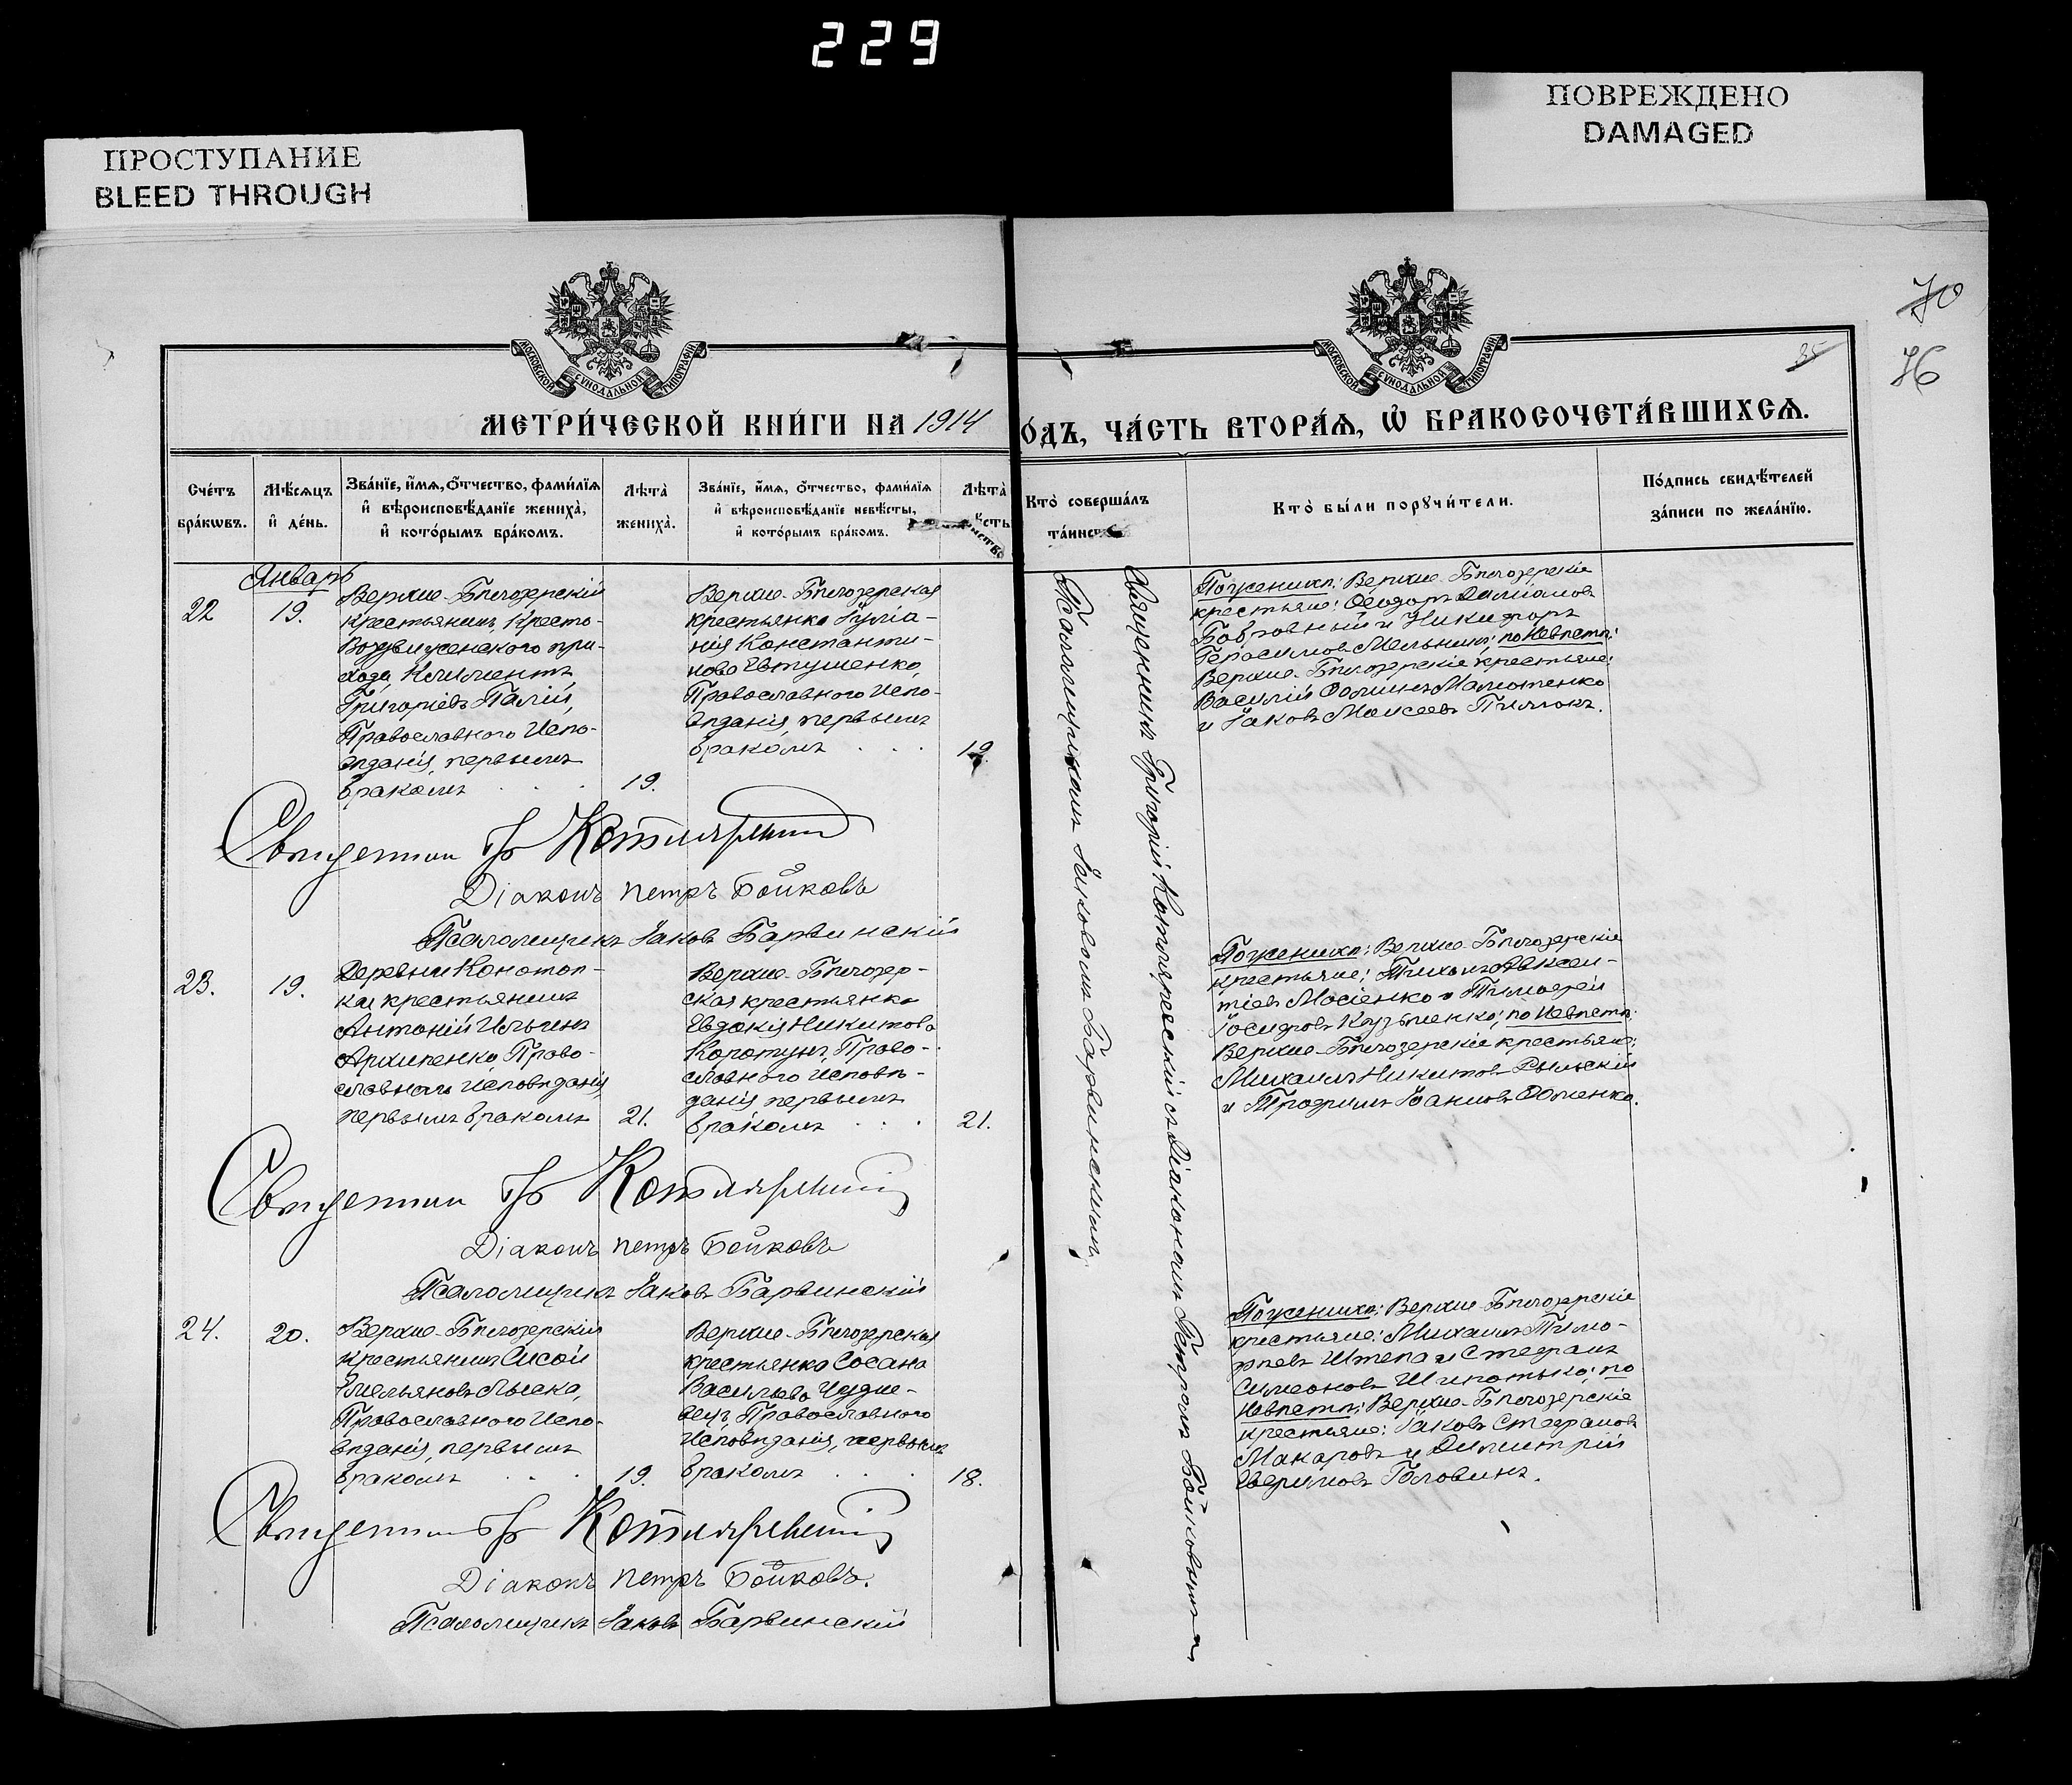 229
ПРОСТУПАНИЕ
BLEED THROUGH
ПОВРЕЖДЕНО
DAMAGED
МОСКОВСКОЙ СѴНОДАЛЬНОЙ ТИПОГРАФІИ
МОСКОВСКОЙ СѴНОДАЛЬНОЙ ТИПОГРАФІИ
70
35
76
МЕТРИ́ЧЕСКОЙ КНИ́ГИ НА 1914
О́ДЪ, ЧА́СТЬ ВТОРА́Ѧ, Ѡ҆ БРАКОСОЧЕТА́ВШИХСѦ.
Сче́тъ
бра́кѡвъ.
Мѣ́сѧцъ
и҆ де́нь.
Зва́нїе, и҆́мѧ, ѻ҆́тчество, фами́лїѧ
и҆ вѣроисповѣ́данїе жениха̀,
и҆ кото́рымъ бра́комъ.
Лѣ́та
жениха̀.
Зва́нїе, и҆́мѧ, ѻ҆́тчество, фами́лїѧ
и҆ вѣроисповѣ́данїе невѣ́сты,
и҆ кото́рымъ бра́комъ.
Лѣ́та
Кто̀ соверша́лъ
та́инст
Кто̀ бы́ли порꙋчи́тели.
По́дпись свидѣ́телей
за́писи по жела́нїю.
Январь
22
19.
Верхне-Бѣлозерскій
крестьянинъ, Кресто-
Воздвиженского при-
хода, Климентъ
Григоріевъ Палій,
Православного Испо-
вѣданія, первымъ
бракомъ . . .
19.
Верхне-Бѣлозерская
крестьянка Іуліа-
нія Константи-
нова Евтушенко,
Православного Испо-
вѣданія, первымъ
бракомъ . . .
19.
Священникъ Григорій Котляревскій съ Діакономъ Петромъ Бойковымъ и
Псаломщикомъ Іаковомъ Барвинскимъ
По женихѣ: Верхне-Бѣлозерскіе
крестьяне: Ѳеодоръ Даміановъ
Бобровный и Никифоръ
Герасимовъ Мельникъ; по Невѣстѣ:
Верхне-Бѣлозерскіе крестьяне:
Василій Ѳоминъ Малютенко
и Іаковъ Моисеевъ
Свящ Гр Котляревскій
Діаконъ Петръ Бойковъ
Псаломщикъ Іаковъ Барвинскій
23.
19.
Деревни Конотоп-
ки крестьянинъ
Антоній Ильинъ
Архипенко, Право-
славного Исповѣданія,
первымъ бракомъ
21.
Верхне-Бѣлозер-
ская крестьянка
Евдокія Никитова
Коротунъ, Право-
славного Исповѣ-
данія первымъ
бракомъ . . .
21.
По женихѣ: Верхне-Бѣлозерскіе
крестьяне: Тихонъ Авксен-
тіевъ Мосіенко и Тимофей
Іосифовъ Кузьменко; по Невѣстѣ:
Верхне-Бѣлозерскіе крестьяне:
Михаилъ Никитовъ Рыльскій
и Трофимъ Іоанновъ Ѳоменко.
Гр Котляревскій
Діаконъ Петръ Бойковъ
Псаломщикъ Іаковъ Барвинскій
24.
20.
Верхне-Бѣлозерскій
крестьянинъ Сисой
Емельяновъ Лысака,
Православного Испо-
вѣданія, первымъ
бракомъ . . .
19.
Верхне-Бѣлозерская
крестьянка Сосана
Васильева Чудне-
вецъ, Православного
Исповѣданія, первымъ
бракомъ . . .
18.
По женихѣ: Верхне-Бѣлозерскіе
крестьяне: Михаилъ Тимо-
фѣевъ Штепа и Стефанъ
Симеоновъ по
Невѣстѣ: Верхне-Бѣлозерскіе
крестьяне: Іаковъ Стефановъ
Макаровъ и Димитрій
Евфимовъ Головинъ.
Гр Котляревскій
Діаконъ Петръ Бойковъ.
Псаломщикъ Іаковъ Барвинскій